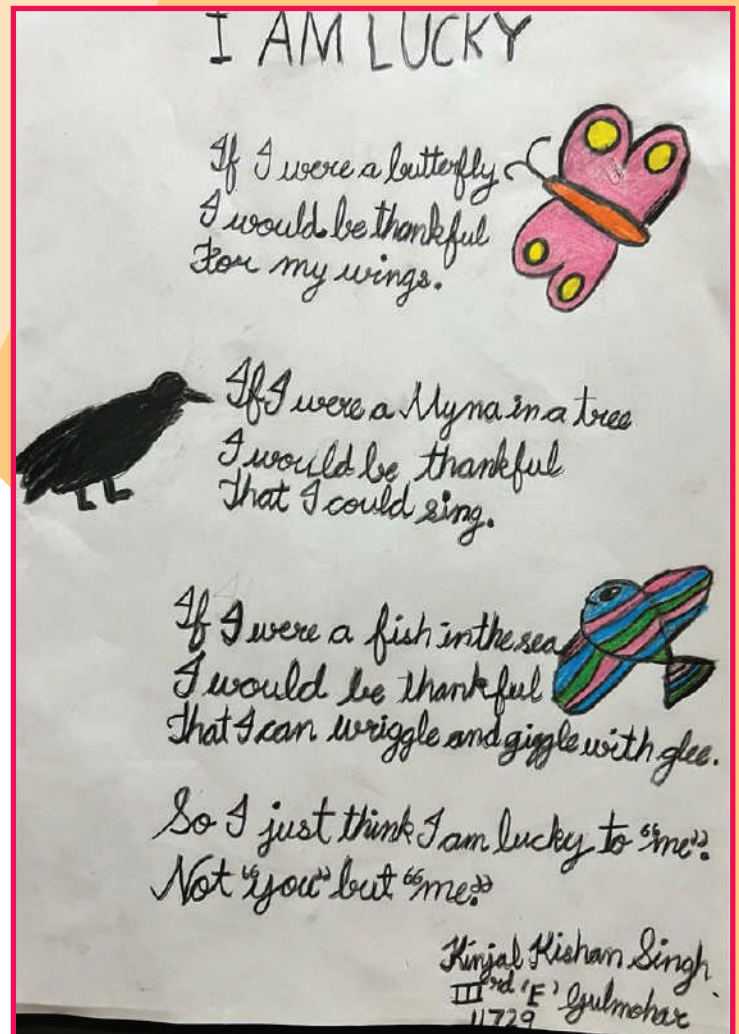 I AM LUCKY
If I were a butterfly
I would be thankful
For my wings.
If I were a Myna in a tree
I would be thankful
That I could sing.
If I were a fish in the sea
I would be thankful
That I can wriggle and giggle with glee.
So I just think I am lucky to "me".
Not "you" but "me."
Kinjal Kishan Singh
IIIrd 'E' Gulmohar
11729